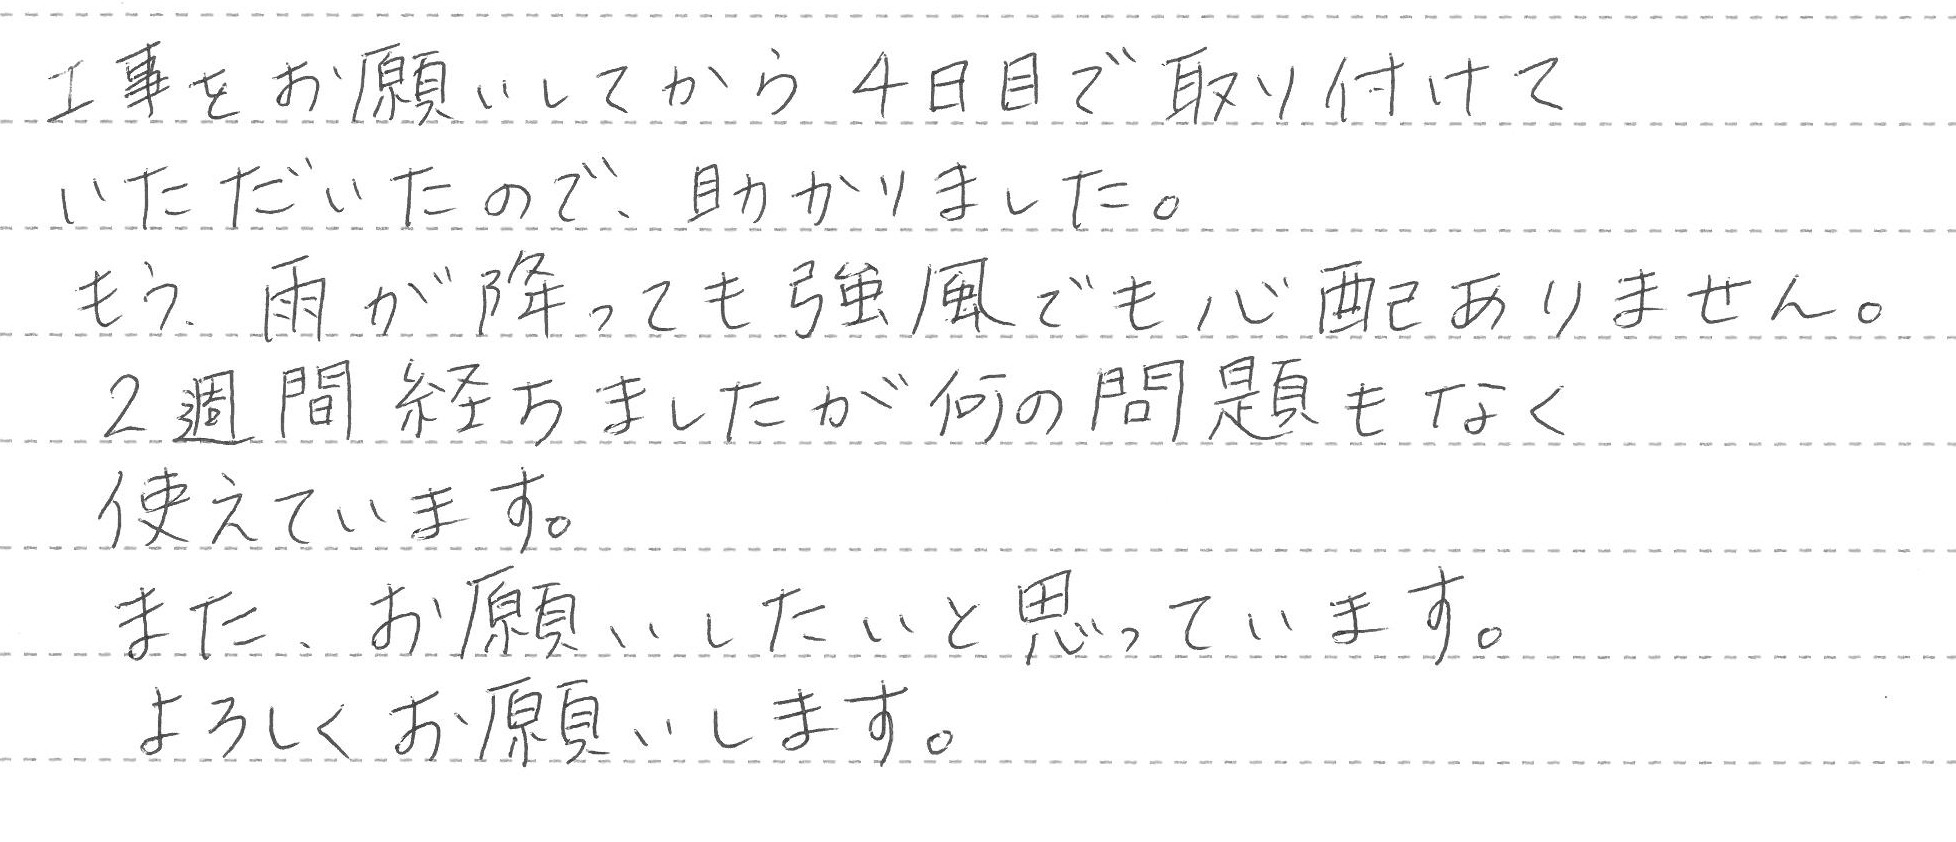 工事をお願いしてから4日目で取り付けて
いただいたので、助かりました。
もう、雨が降っても強風でも心配ありません。
2週間経ちましたが何の問題もなく
使えています。
また、お願いしたいと思っています。
よろしくお願いします。